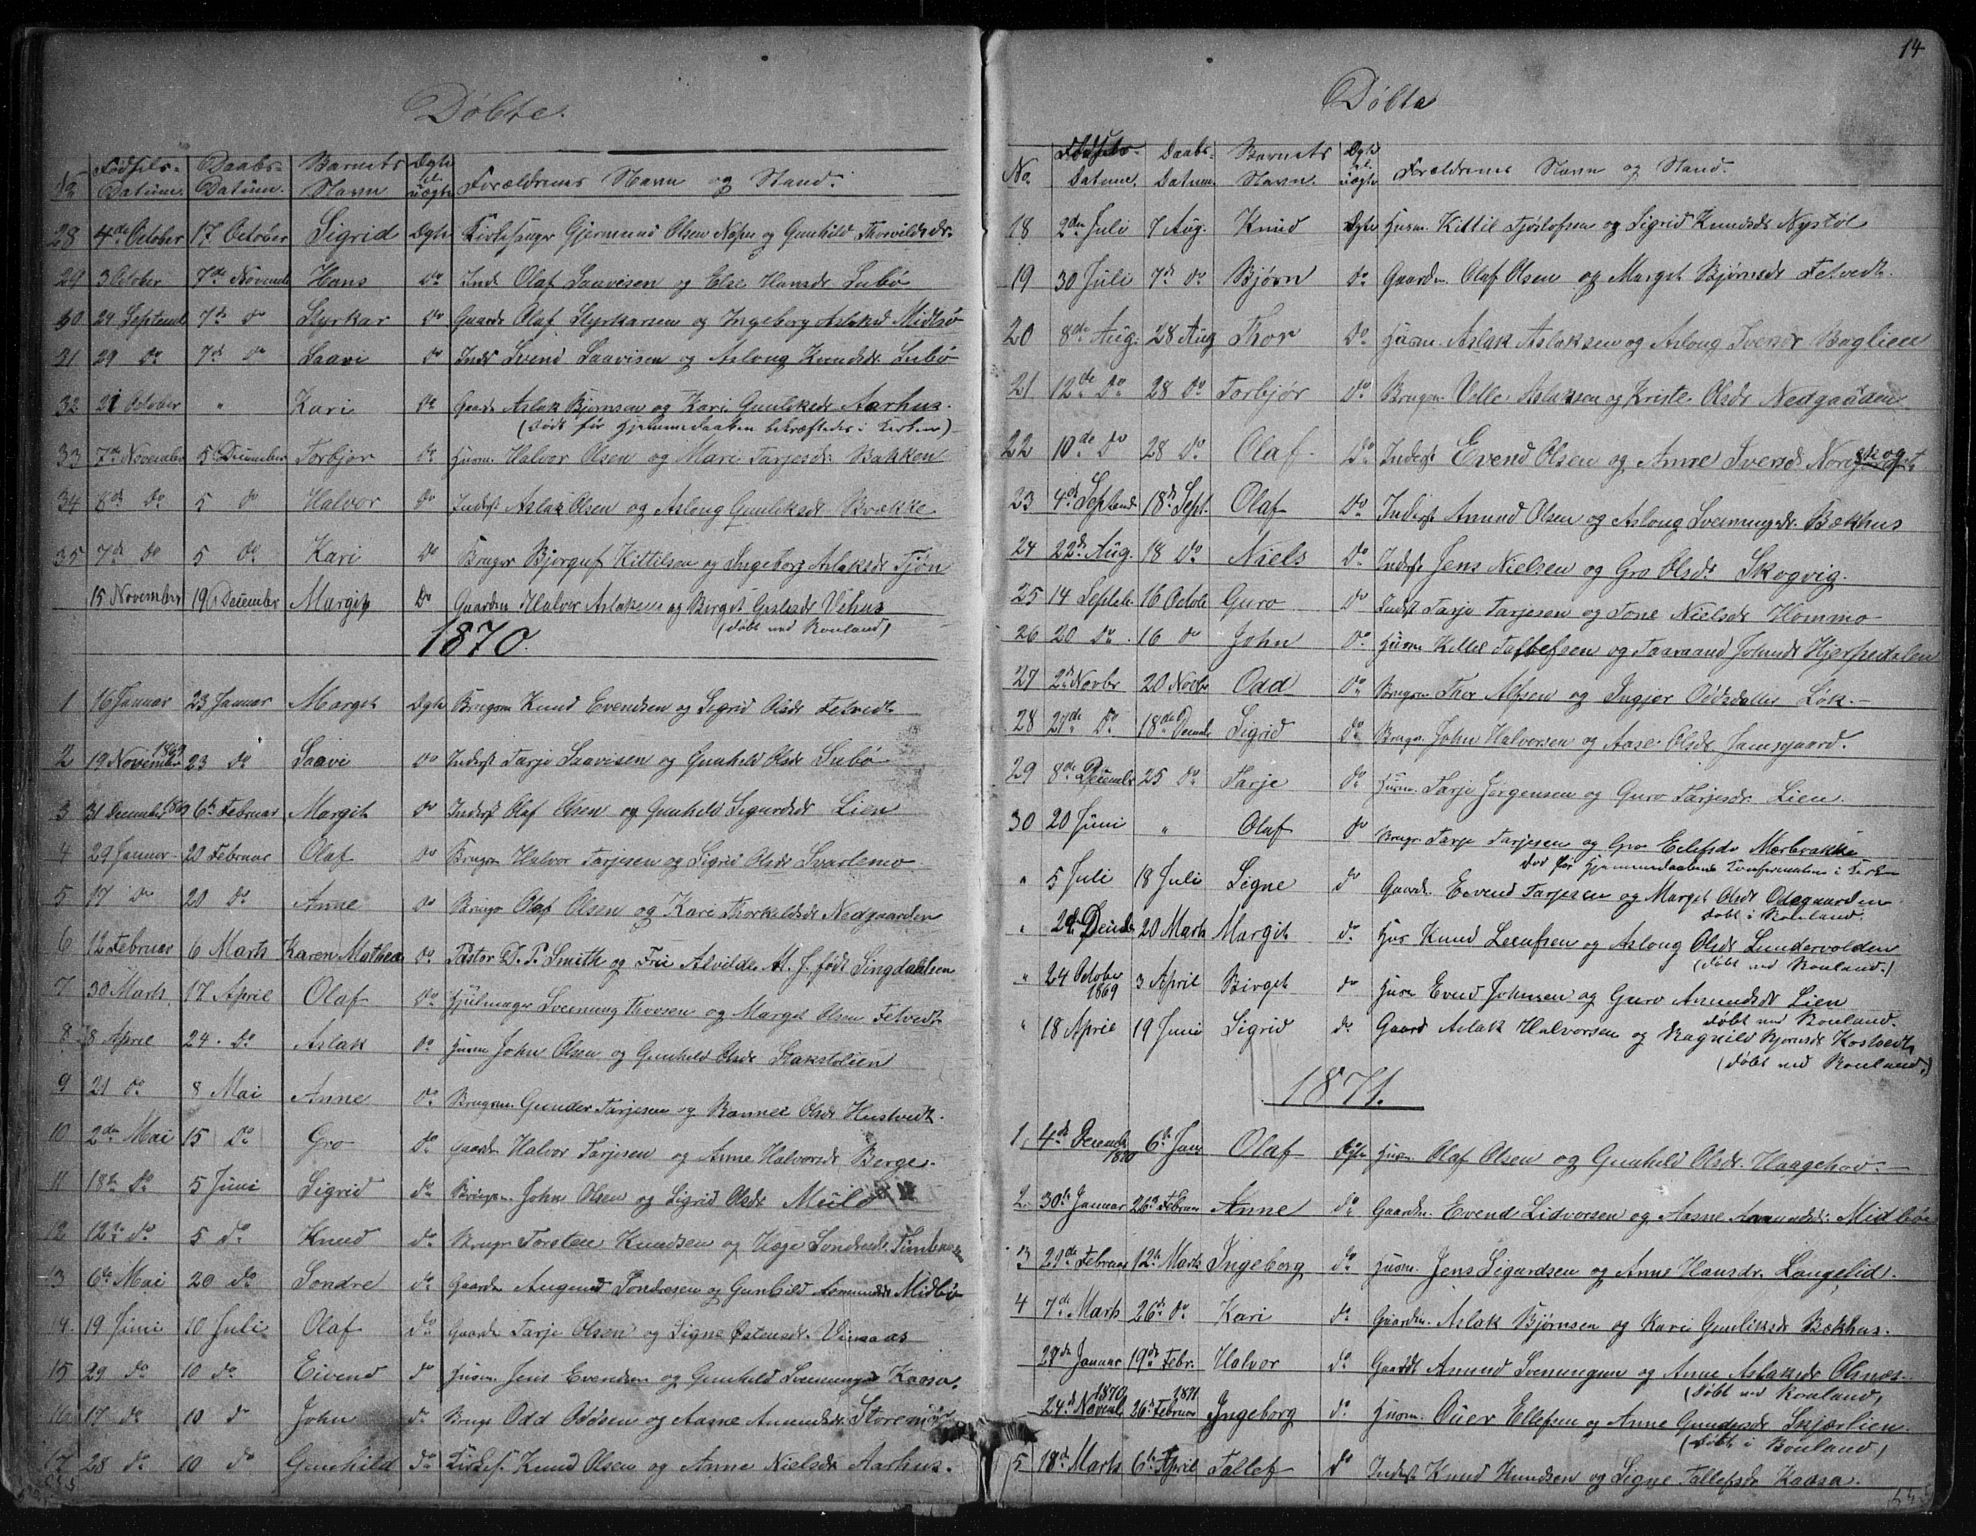 Døbte.
No Fødsels-Datum. Daabs-Datum. Barnets Navn Dgte el. uægte Forældrenes Navn og Stand.
28 4de October 17 October Sigrid Dgte Kirkesanger Gjermund Olsen og Gunhild Thorvildsdr.
29 3 October 7de Novemb Hans do Inds Olaf Saavesen og Else Hansdr Subø
30 24 Septemb 7de do Styrkar do Gaardm Olaf Styrkarsen og Ingeborg Aslaksd Midbø
31 29 do 7de do Saavi do Inds Svend Saavisen og Aslong Knudsdr Subø
32 21 October " Kari do Gaardm Aslak Bjørnsen og Kari Gunliksdr Aarhus.
(døde før Hjemmedaaben bekræftedes i Kirken)
33 7de November 5 December Torbjør do Husm. Halvor Olsen og Mari Tarjesdr Bakken
34 8de do 5 do Halvor do Inderst Aslak Olsen og Aslong Gunliksdr Brække
35 7de do 5 do Kari do Bruger Bjørguf Kittilsen og Ingeborg Aslaksdr Tjøn
15 November 19 December Margit do Gaardm Halvor Aslaksen og Birget Vehus
(døbt ved Rouland)
1870.
1 16 Januar 23 Januar Margit Dgte Brugsm Knud Evendsen og Sigrid Olsdr Fetvedt
2 19 November 1869 23 do Saavi do Inderst Tarje Saavisen og Gunhild Olsdr Subø
3 31 December 1869 6te Februar Margit do Inderst Olaf Olsen og Gunhild Sigurdsdr Lien
4 29 Januar 20 Februar Olaf do Brugsm Halvor Tarjesen og Sigrid Olsdr Svartemo
5 17 do 20 do Anne do Brugs Olaf Olsen og Kari Thorkildsdr Nedgaarden
6 12 Februar 6 Marts Karen Mathea do Pastor D. P. Smith og Fru Alvilde M. J. født Singdahlsen
7 30 Marts 17 April Olaf do Hjulmager Svenning Thorsen og Margit Olsen Fetvedt
8 8 April 24 do Aslak do Husm John Olsen og Gunhild Olsdr Stakstølien
9 21 do 8 Mai Anne do Brugsm. Gunder Tarjesen og Rannei Olsdr Hustvedt.
10 2den Mai 15 do Gro do Gaardm Halvor Tarjesen og Anne Halvorsdr Berge.
11 18de do 5 Juni Sigrid do Brugsm. John Olsen og Sigrid Olsdr Mule
12 12te do 5 do Knud do Brugr Torsten Knudsen og Hæge Sondresdr
13 6te Mai 20 do Sondre do Gaardm Augund Sondresen og Gunhild Aamundsdr Midbø
14. 19 Juni 10 Juli Olaf do Gaardm Tarje Olsen og Signe Østensdr. Vinaas
15 29 do 10 do Eivend do Husm Jens Evendsen og Gunhild Svenningsdr Kaasa.
16 17 do 10 do John do Brugs Odd Oddsen og Aasne Amundsdr
17 28 do 10 do Gunhild do Kirkes. Knud Olsen og Anne Nielsdr Aarhus.
14
Døbte
No. Fødsels-Datum. Daabs-Datum. Barnets Navn. Dgte el. uægte Forældrenes Navn og Stand.
18 2den Juli 7 Aug. Knud Dgte Husm. Kittil Tjøstolfsen og Sigrid Knudsdr Nystøl
19 30 Juli 7de do Bjørn do Gaardm. Olaf Olsen og Margit Bjørnsdr Fetvedt.
20 8de Aug. 28 Aug Thor do Husm. Aslak Aslaksen og Aslong Svensdr Baglien
21 12de do 28 do Torbjør do Brugsm. Velle Aslaksen og Kriste Olsdr Nedgaarden
22 10de do 28 do Olaf do Inderst Evend Olsen og Anne Iversd
23 4de Septemb 18de Sept. Olaf do Inderst Amund Olsen og Aslong Svenningsdr. Bækhus
24 22de Aug. 18 do Niels do Inderst Jens Nielsen og Gro Olsdr Skogvig.
25 14 Septeb 16 Octob Guro do Inderst Tarje Tarjesen og Tone Nielsdr Hommo
26 20 do. 16 do John do Husm Kittil og Johnsdr Hjerpedalen
27 2de Novbr 20 Novbr Odd do Brugsm. Thor Alfsen og Ingjer Oddsdatter Løk.
28 27de do 18de Decemb Sigrid do Brugs John Halvorsen og Aase Olsdr Jamsgaard.
29 8de Decemb 25 do Tarje do Husm. Tarje Jørgensen og Guro Tarjesdr. Lien.
30 20 Juni " Olaf do Brugr Tarje Tarjesen og Gro Eilefsdr Mærbrække
død før Hjemmedaabens Konfirmation i Kirken
" 5 Juli 18 Juli Signe do Gaardm. Evend Tarjesen og Margit Olsdr Odegaarden
døbt i Rouland.
" 20 Marts Margit do Hus Knud Leeufsen og Aslong Olsdr Sundervolden
(døbt ved Rouland.)
" 24 October 1869 3 April Birget do Husm Evend Johnsen og Guro Amundsdr Lien
døbt ved Rouland.
" 18 April 19 Juni Sigrid do Gaard Aslak Halvorsen og Ragnild Bjørnsdr Kostvedt
(døbt ved Rouland.)
1871.
1, 4de Decemb 1870 6te Janr Olaf Dgte Husm. Olaf Olsen og Gunhild Olsdr. Haagehov
2. 30te Januar 26de Februar Anne do Gaardm. Evend Lidvorsen og Aasne Amundsdr. Midbøe
3 21de Februar 12te Marts Ingeborg do Husm. Jens Sigurdsen og Anne Hansdr. Langelid.
4 7de Marts 26de do Kari do Gaardm. Aslak Bjørnsen og Kari Gunliksdr Bækhus.
27de Januar 19de Febr. Halvor do Gaardt Amund Svenningsen og Anne Aslaksdr Olsnes.
(døbt ved Rouland,
24de Novemb 1870 26de Februar 1871 Ingeborg do Husm. Ouer Ellefsen og Anne Gundersdr Skjærlien
(døbt i Rouland)
5 18de Marts 6te April Tallef do Inderst Knud Knudsen og Signe Tallefsdr Kaasa.